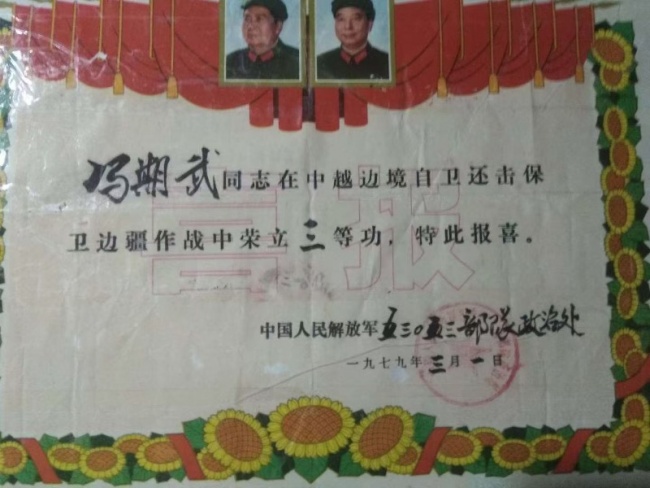 喜报
冯期武同志在中越边境自卫还击保
卫边疆作战中荣立三等功，特此报喜。
中国人民解放军五三〇五三部队政治处
一九七九年三月一日